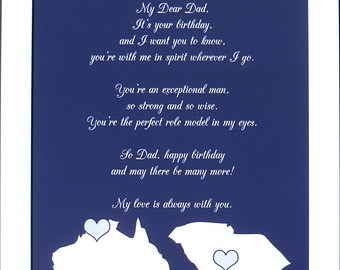 My Dear Dad,
It's your birthday,
and I want you to know,
you're with me in spirit wherever I go.
You're an exceptional man,
so strong and so wise.
You're the perfect role model in my eyes.
So Dad, happy birthday
and may there be many more!
My love is always with you.